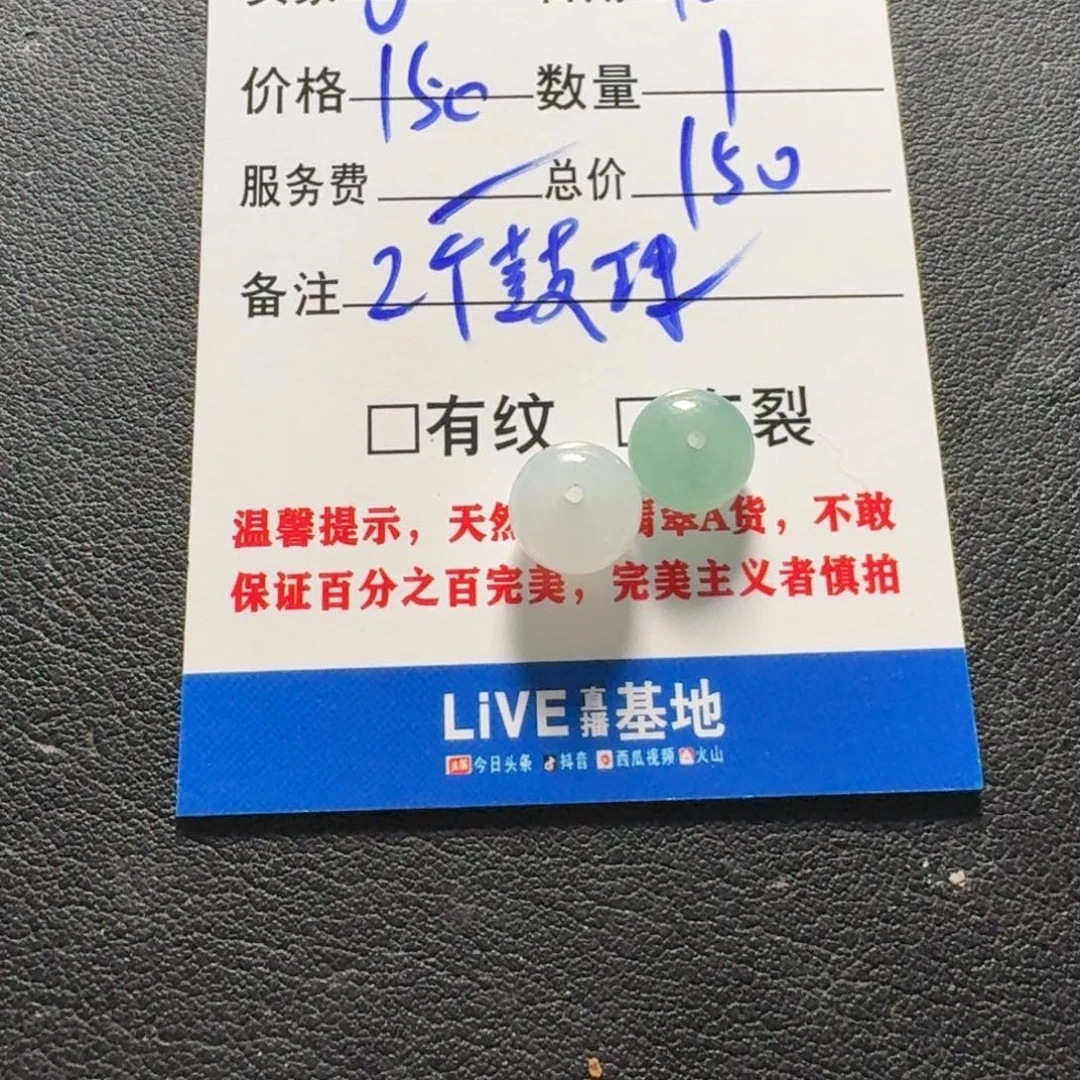 价格 150 数量 1
服务费 总价 150
备注 2个鼓珠
□有纹 裂
温馨提示，天然 翡翠A货，不敢
保证百分之百完美，完美主义者慎拍
LiVE直播基地
头条 今日头条 抖音 西瓜视频 火山